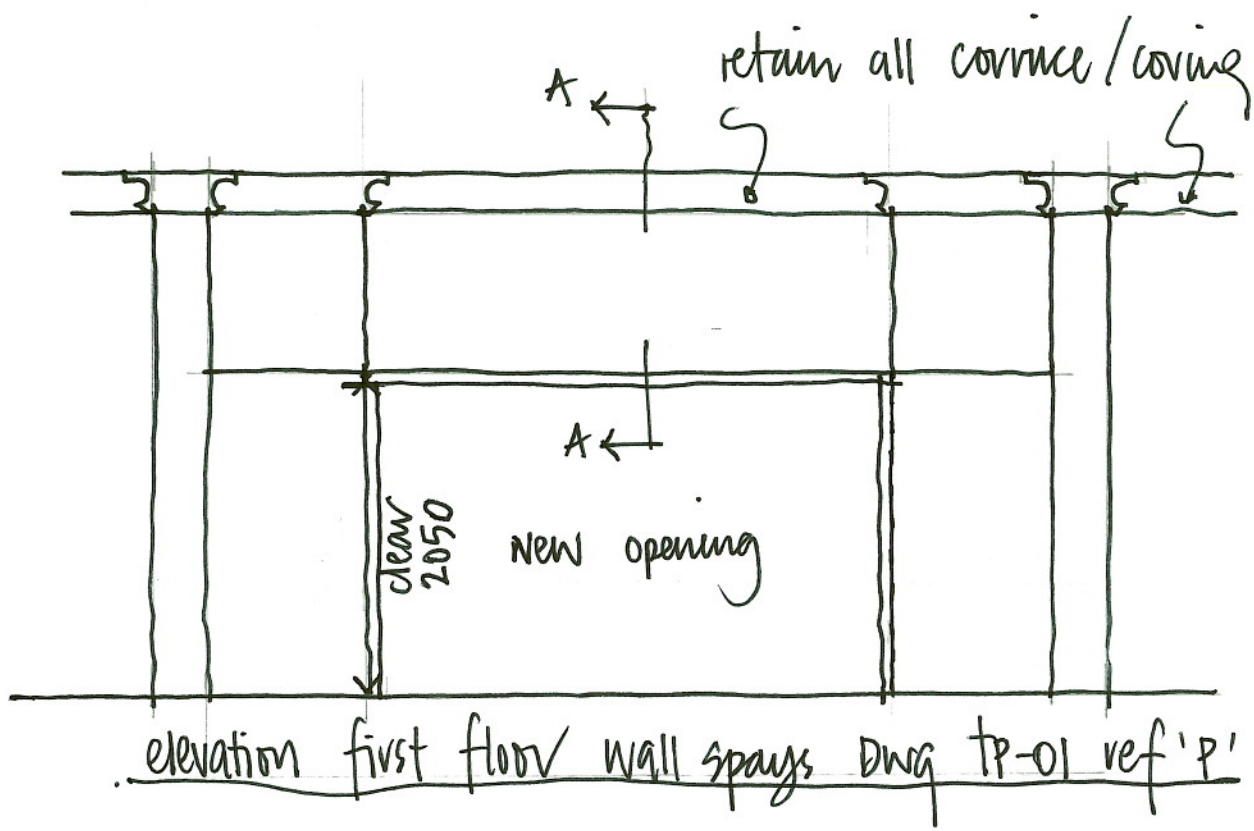 retain all cornice/coving
A
A
clear
2050
New opening
elevation first floor wall spays Dwg TP-01 ref 'P'